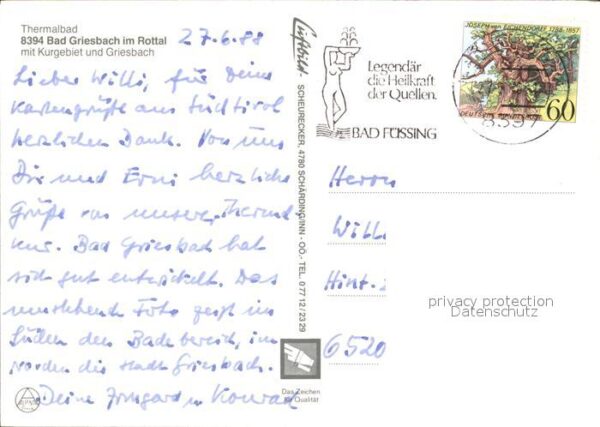 Thermalbad
8394 Bad Griesbach im Rottal
mit Kurgebiet und Griesbach
27.6.88
Lieber Willi, für Deine
Kartengrüße aus Südtirol
herzlichen Dank. Von uns
Dir und Erni herzliche
Grüße von unserer Thermal
kur. Bad Griesbach hat
sich gut entwickelt. Das
umstehende Foto zeigt im
Süden den Badebereich, im
Norden die Stadt Griesbach.
Deine Irmgard u Konrad
Luftbild
SCHEURECKER, 4780 SCHÄRDING/INN - OÖ.- TEL. 0 77 12 / 23 29
Das Zeichen
für Qualität
Legendär
die Heilkraft
der Quellen.
BAD FÜSSING
JOSEPH von EICHENDORFF 1788-1857
60
DEUTSCHE BUNDESPOST
8397
Herrn
Willi
Hint.
6520
privacy protection
Datenschutz